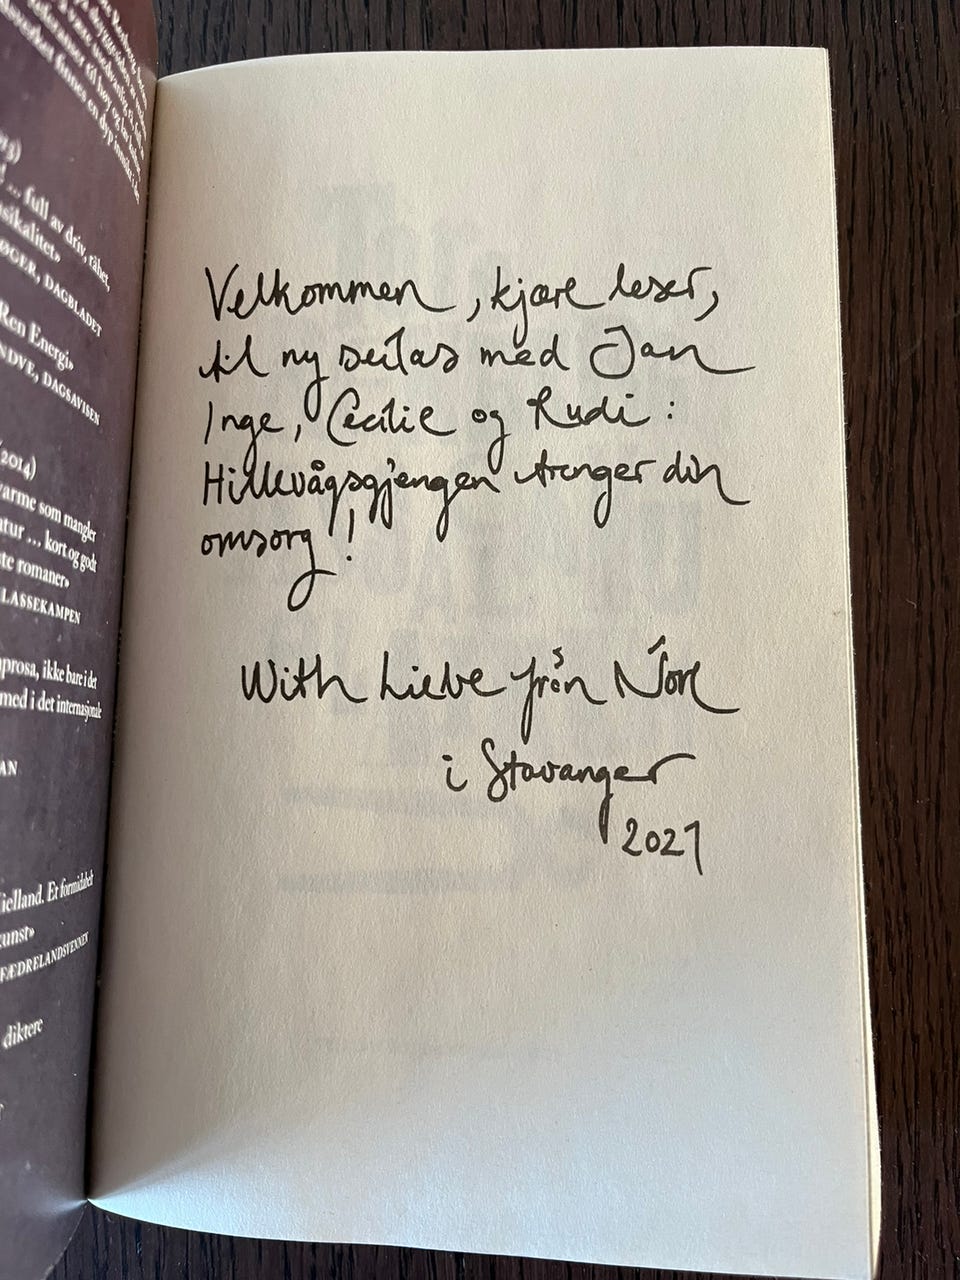 dyp
... full av driv, råhet,
DAGBLADET
Ren Energi»
DAGSAVISEN
(2014)
varme som mangler
... kort og godt
romaner»
KLASSEKAMPEN
ikke bare i det
med i det internasjonale
Et formidabelt
FÆDRELANDSVENNEN
diktere
Velkommen, kjære leser,
til ny seilas med Jan
Inge, Cecilie og Rudi:
Hillevågsgjengen trenger din
omsorg!
With Liebe från Tore
i Stavanger
2021